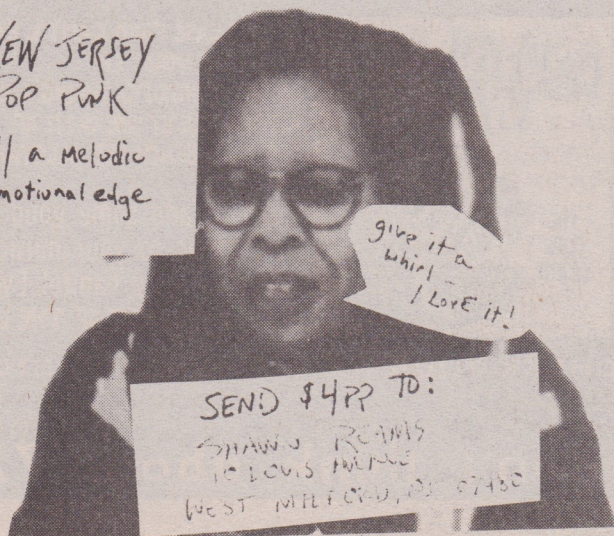 EW JERSEY
POP PUNK
/ a melodic
motional edge
give it a
whirl –
I LOVE it!
SEND $4PP TO:
SHAWN REAMS
10 LOUIS AVENUE
WEST MILFORD, NJ 07480